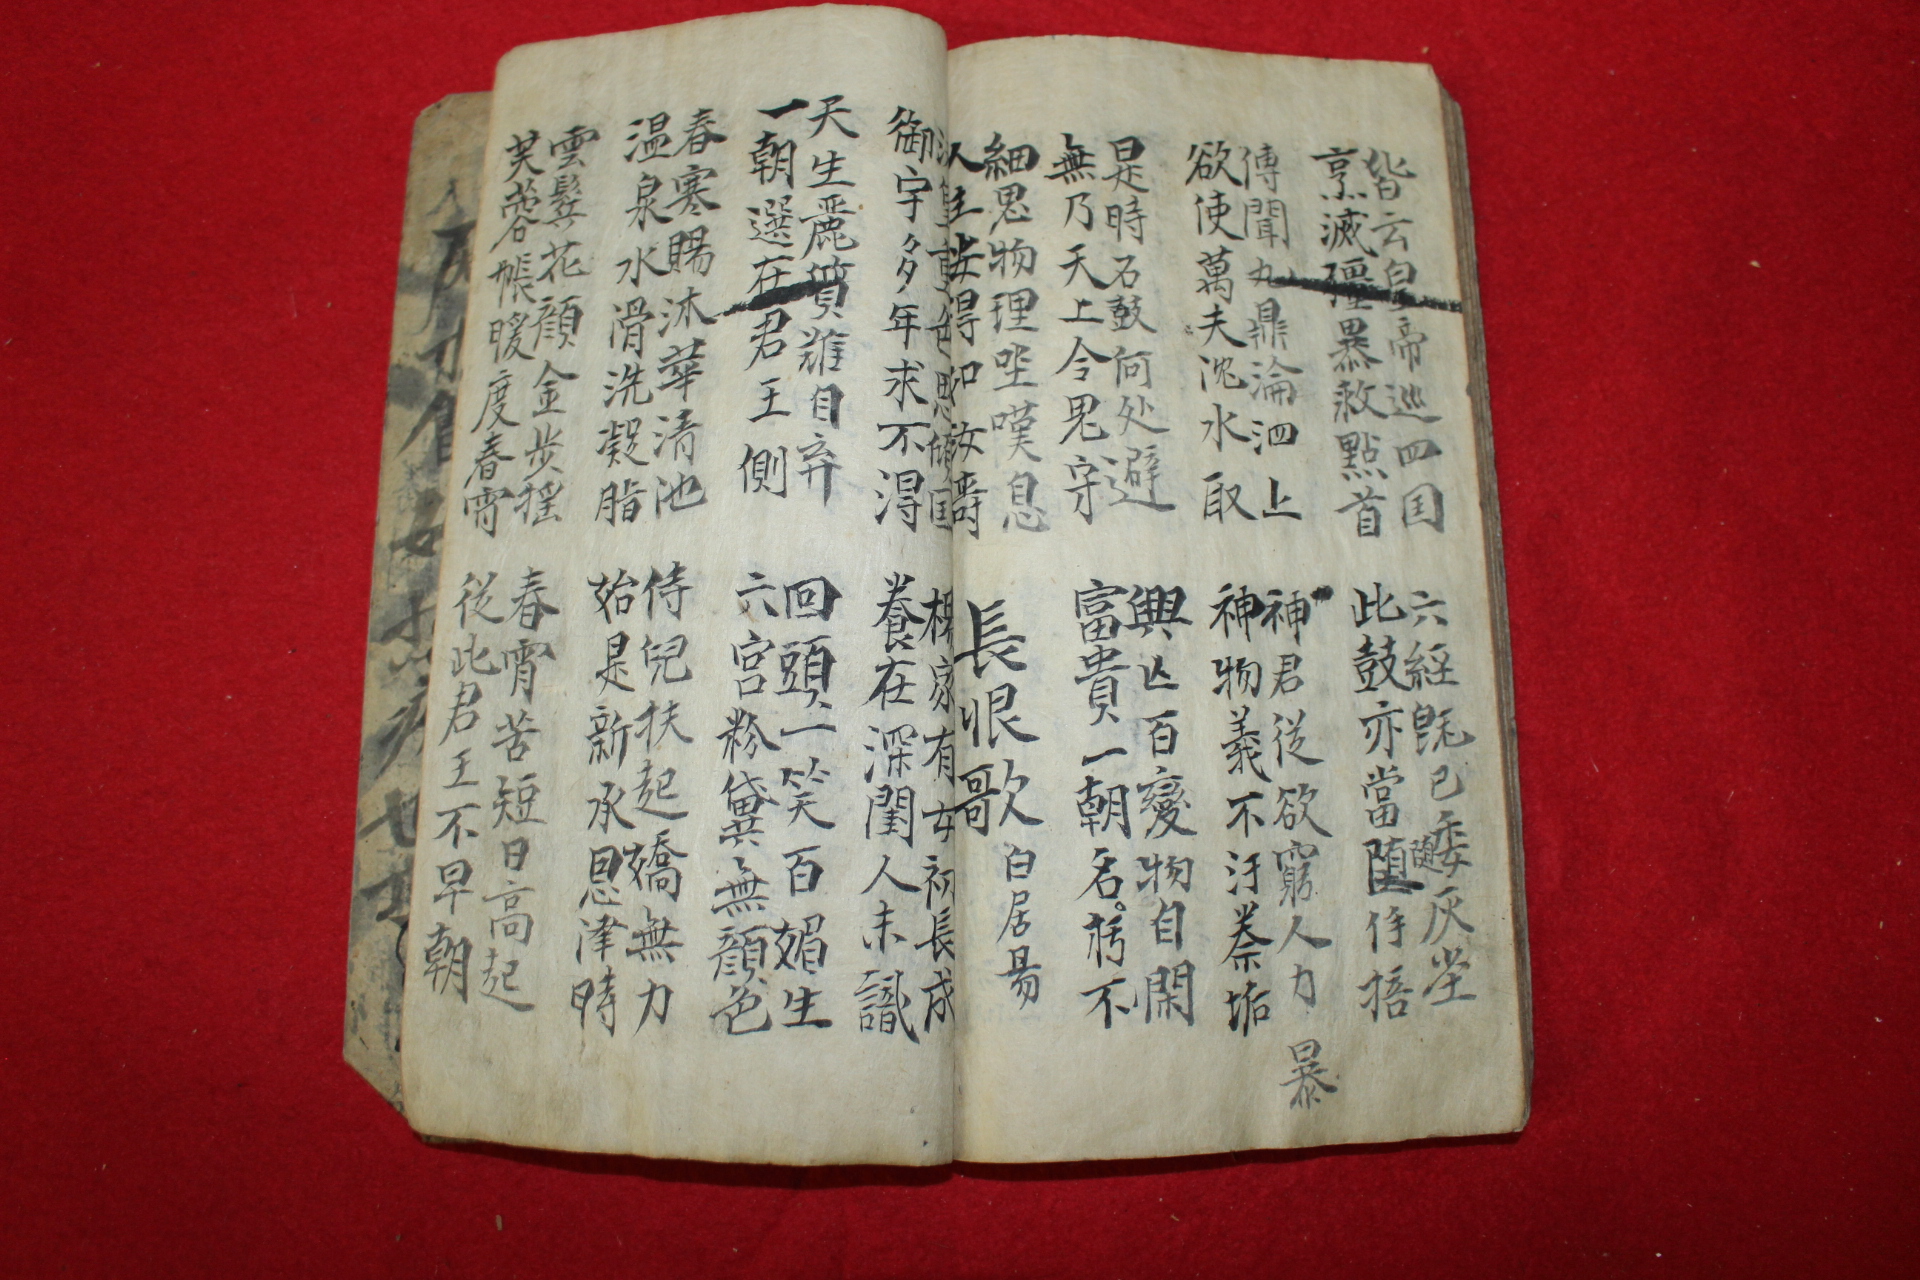 皆云皇帝巡四囯
烹滅彊暴救點首
六經旣已委灰坐
隨
此鼓亦當堕侔掊
傳聞九鼎淪泗上
欲使萬夫沈水取
神君從欲窮人力 暴
神物義不汙秦垢
是時石鼓何处避
無乃天上令鬼守
興亡百変物自閑
富貴一朝名朽不
細思物理坐嘆息
人生安得如汝壽
長恨歌 白居易
漢皇重色思傾国
御宇多年求不得
楊家有女初長成
養在深閨人未識
天生麗質難自弃
一朝選在君王側
回頭一笑百媚生
六宮粉黛無顔色
春寒賜沐華清池
温泉水滑洗凝脂
侍兒扶起嬌無力
始是新承恩澤時
雲鬂花顔金步揺
芙蓉帳暖度春宵
春宵苦短日高起
從此君王不早朝